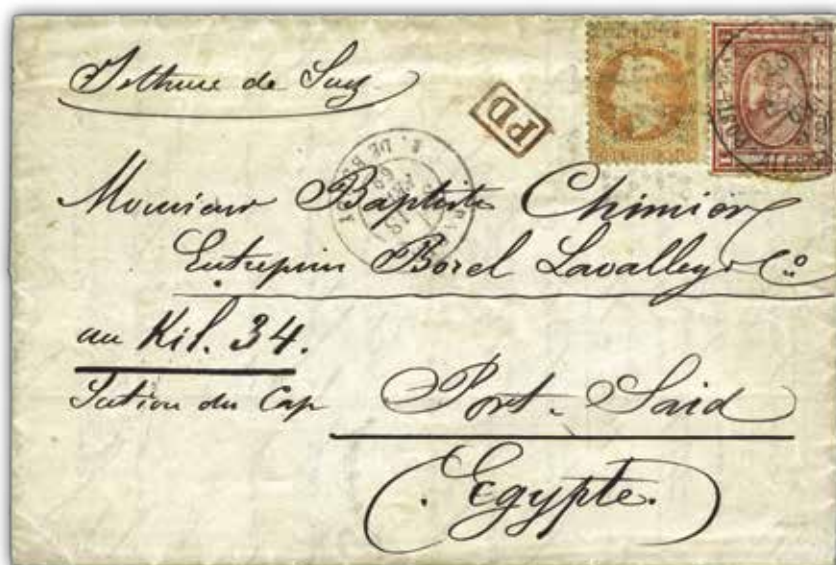 Isthme de Suez
PD
Monsieur Baptiste Chimier
Entreprise Borel Lavalley & Co
au Kil. 34.
Station du Cap
Port-Said
Egypte.